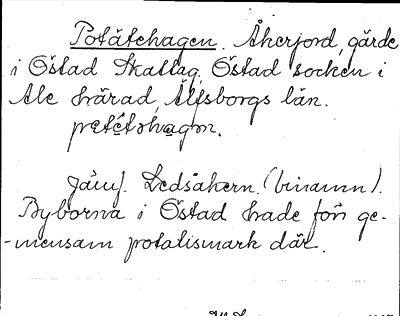 Potätehagen. Åkerjord, gärde
i Östad Skattag. Östad socken i
Ale härad, Älfsborgs län.
pete̍tɘhagɘn.
Jämf. Ledsåkern (binamn).
Byborna i Östad hade förr ge-
-mensam potatismark där.